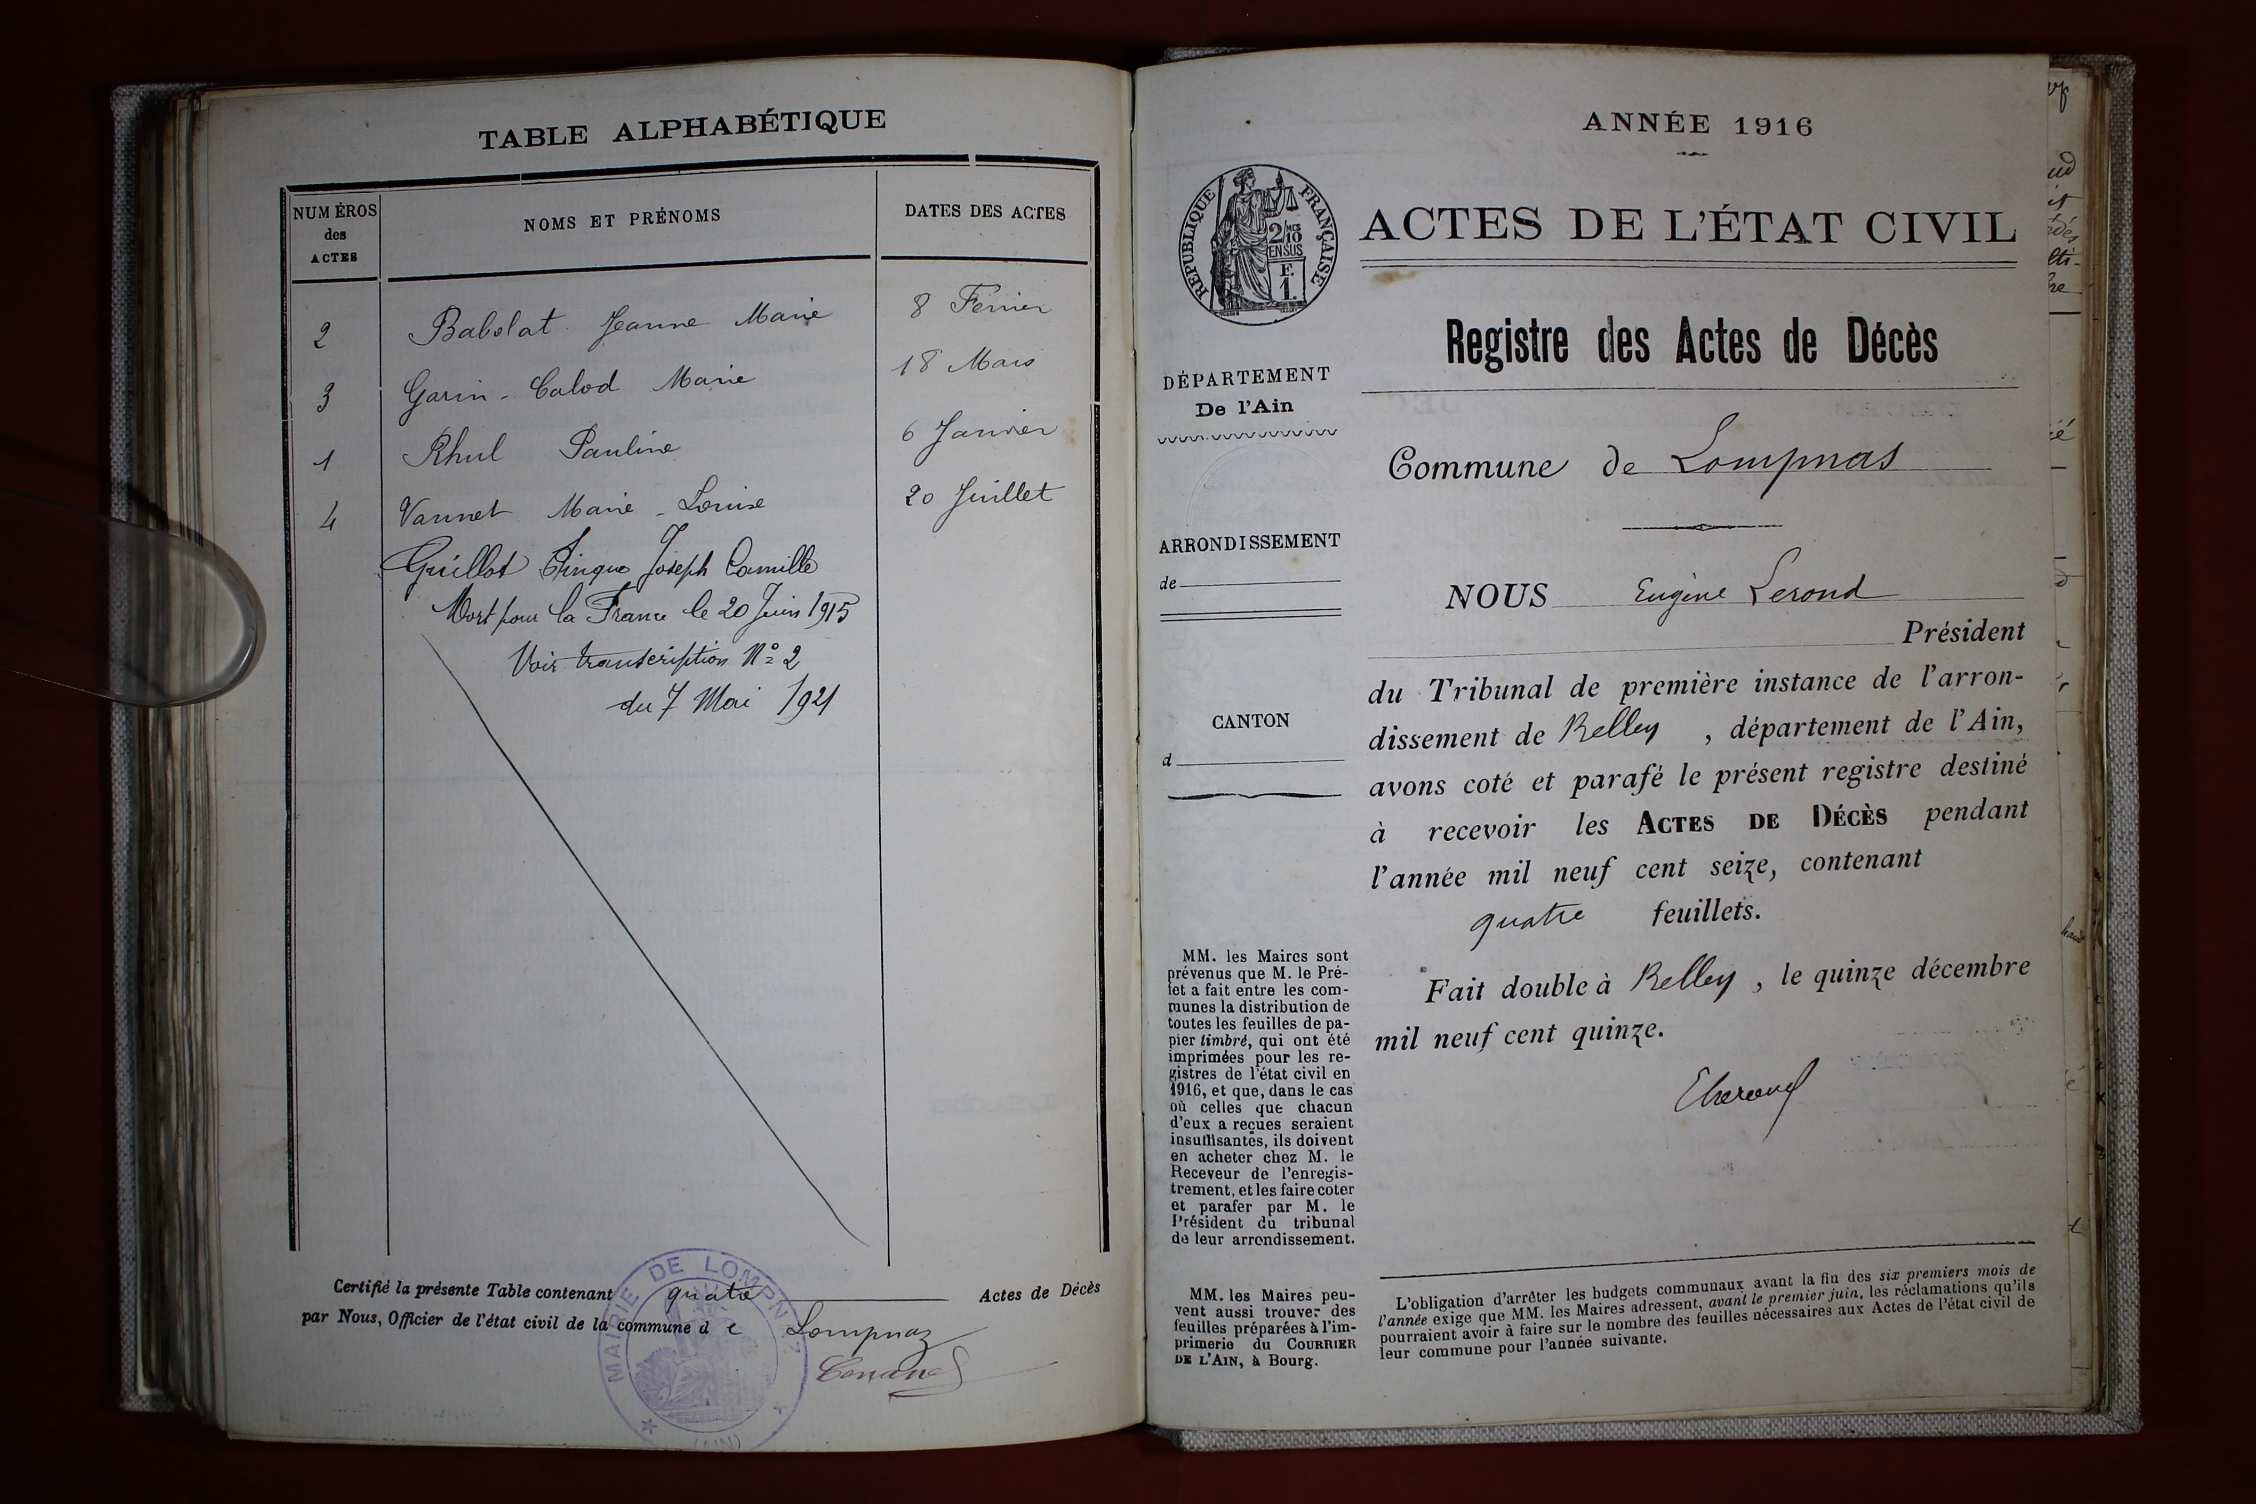 TABLE ALPHABÉTIQUE
NUMÉROS
des
ACTES
NOMS ET PRÉNOMS
DATES DES ACTES
2 Babolat Jeanne Marie 8 Février
3 Garin-Calod Marie 18 Mars
1 Rhul Pauline 6 Janvier
4 Vannet Marie-Louise 20 Juillet
Guillot Joseph Camille
Mort pour la France le 20 Juin 1915
Voir transcription No 2
du 7 Mai 1921
Certifié la présente Table contenant quatre Actes de Décès
par Nous, Officier de l'état civil de la commune de Lompnaz
MAIRIE DE LOMPNAZ
(AIN)
ANNÉE 1916
RÉPUBLIQUE FRANÇAISE
2/10
EN SUS
F.
1.
ACTES DE L'ÉTAT CIVIL
Registre des Actes de Décès
DÉPARTEMENT
De l'Ain
Commune de Lompnas
ARRONDISSEMENT
de
CANTON
d
NOUS Eugène Lerond
Président
du Tribunal de première instance de l'arron-
dissement de Belley, département de l'Ain,
avons coté et parafé le présent registre destiné
à recevoir les ACTES DE DÉCÈS pendant
l'année mil neuf cent seize, contenant
quatre feuillets.
Fait double à Belley, le quinze décembre
mil neuf cent quinze.
MM. les Maires sont
prévenus que M. le Pré-
fet a fait entre les com-
munes la distribution de
toutes les feuilles de pa-
pier timbré, qui ont été
imprimées pour les re-
gistres de l'état civil en
1916, et que, dans le cas
où celles que chacun
d'eux a reçues seraient
insuffisantes, ils doivent
en acheter chez M. le
Receveur de l'enregis-
trement, et les faire coter
et parafer par M. le
Président du tribunal
de leur arrondissement.
MM. les Maires peu-
vent aussi trouver des
feuilles préparées à l'im-
primerie du COURRIER
DE L'AIN, à Bourg.
L'obligation d'arrêter les budgets communaux avant la fin des six premiers mois de
l'année exige que MM. les Maires adressent, avant le premier juin, les réclamations qu'ils
pourraient avoir à faire sur le nombre des feuilles nécessaires aux Actes de l'état civil de
leur commune pour l'année suivante.